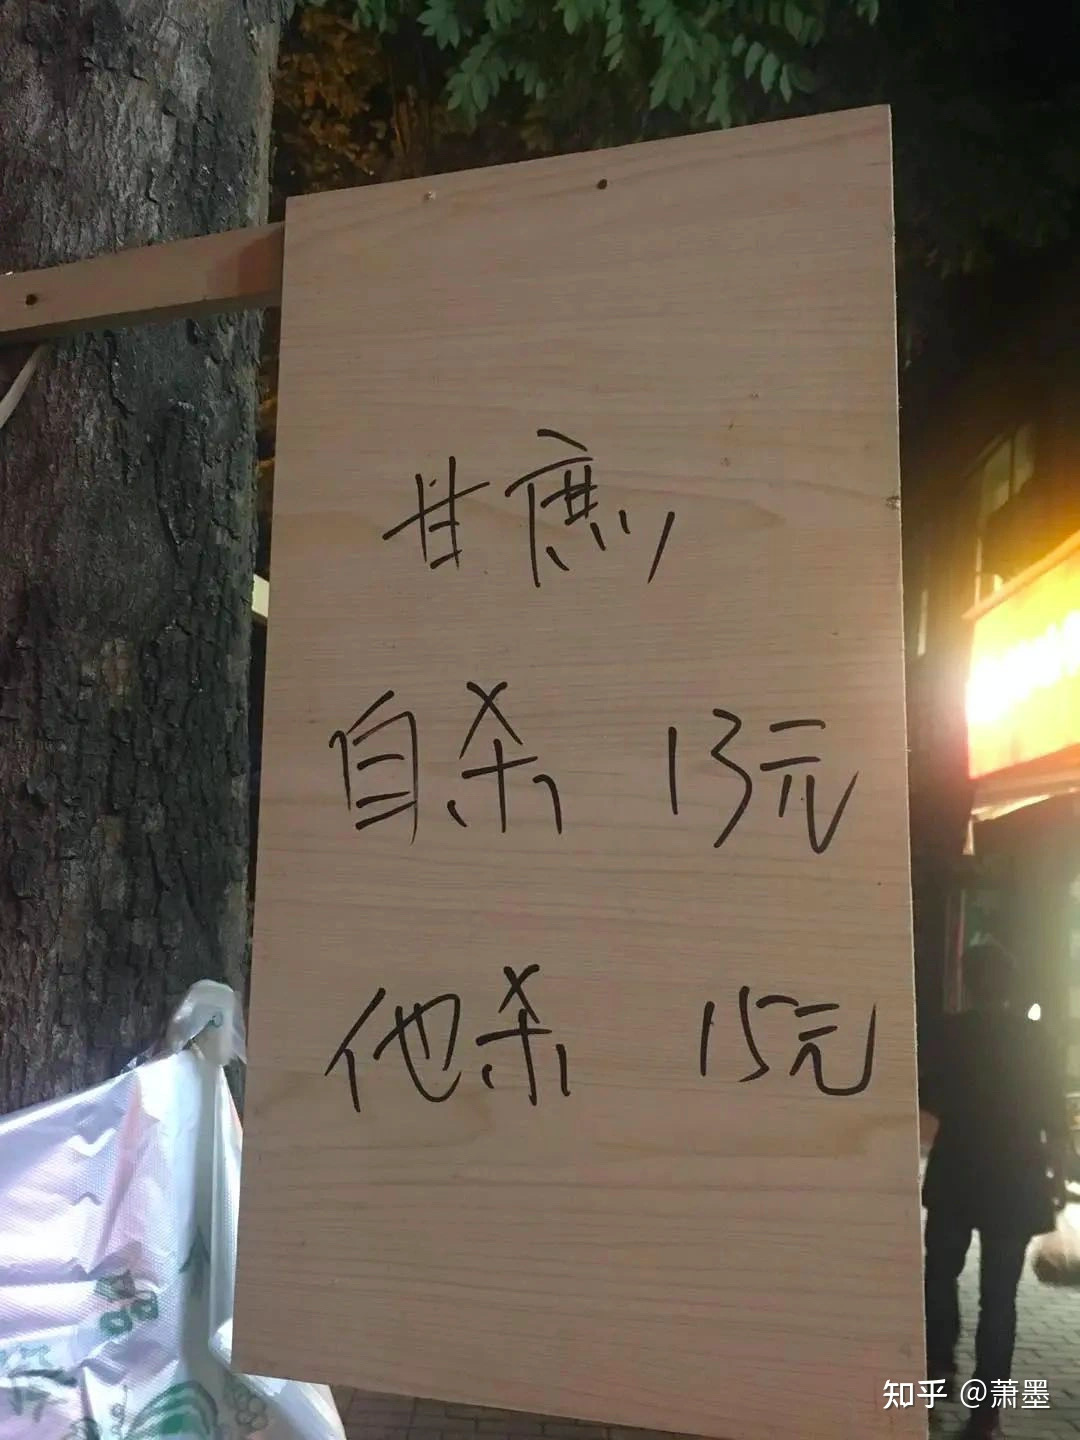 甘庶
自杀 13元
他杀 15元
知乎 @萧墨